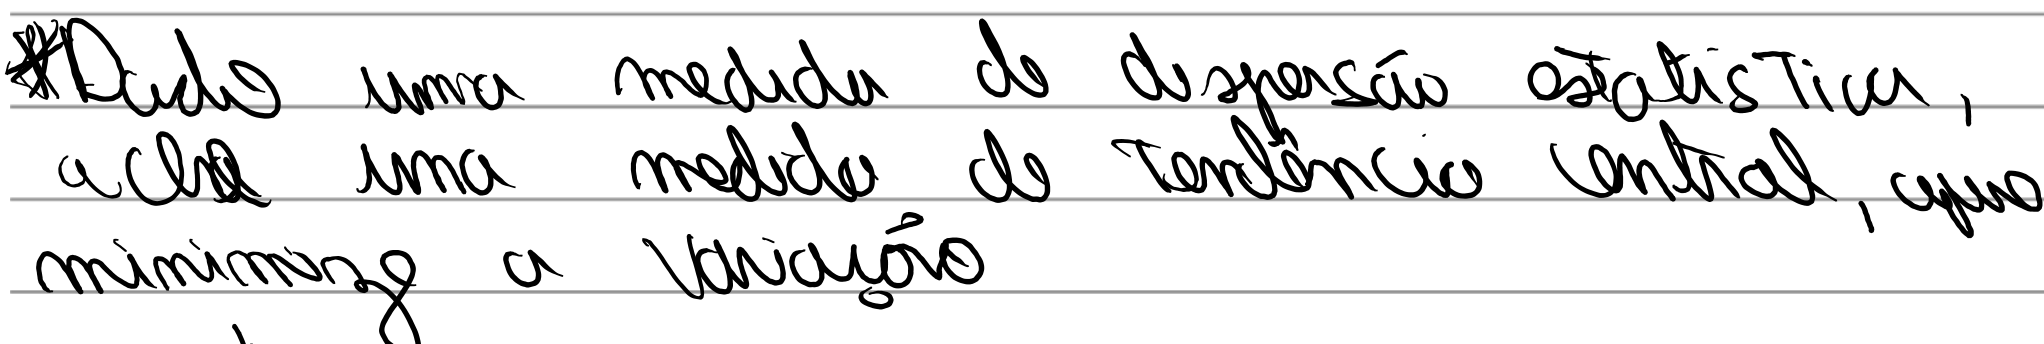 *Dada uma medida de dispersão estatística,
ache uma medida de tendência central, que
minimize a variação